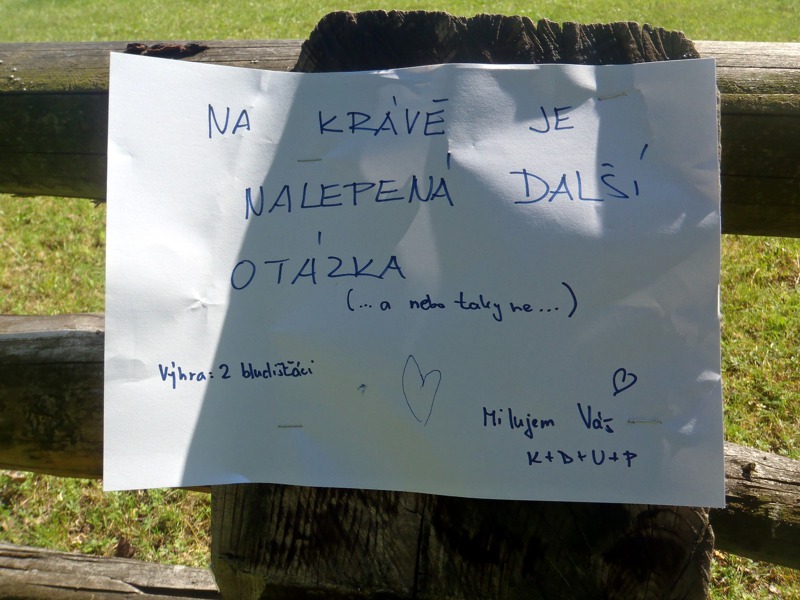 NA KRÁVĚ JE
NALEPENÁ DALŠÍ
OTÁZKA
(... a nebo taky ne...)
Výhra: 2 bludišťáci
Milujem Vás
K+D+U+P